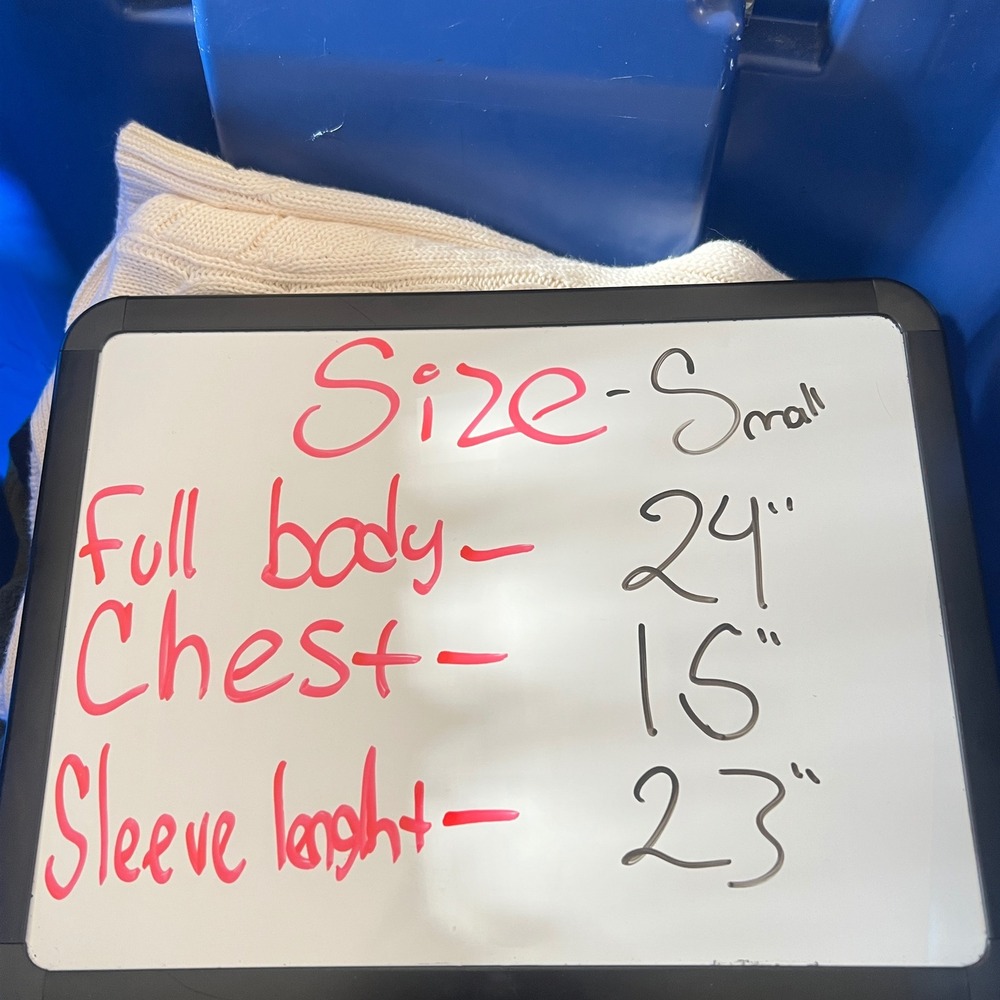 Size - Small
Full body - 24"
Chest - 15"
Sleeve lenght - 23"